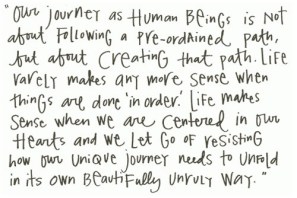 "Our journey as Human Beings is Not
about Following a Pre-ordained path,
but about Creating that path. Life
rarely makes any more sense when
things are done 'in order.' Life makes
Sense when we are Centered in our
Hearts and we Let Go of resisting
how our unique journey needs to unfold
in its own Beautifully unruly way."